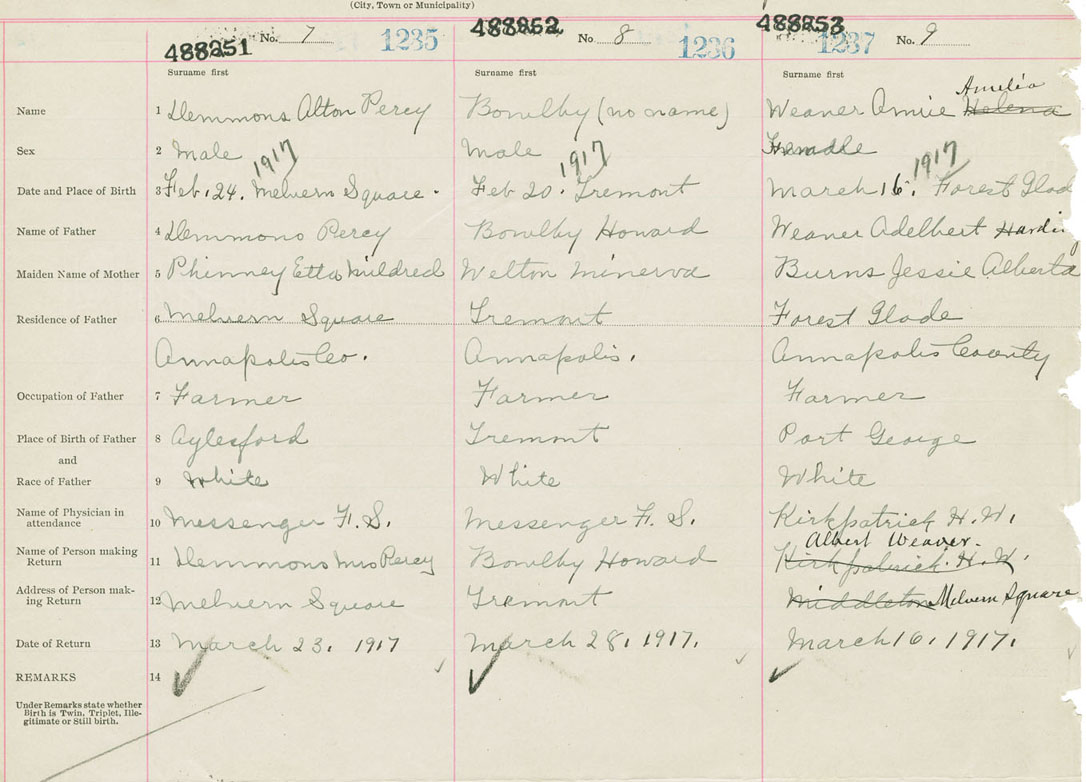 (City, Town or Municipality)
488251 No. 7 1235 488252 No 8 1236 488253 1237 No. 9
Surname first Surname first Surname first
Amelia
Name 1 Demmons Alton Percy Bowlby (no name) Weaver Annie Helena
Sex 2 Male Male Female
1917 1917 1917
Date and Place of Birth 3 Feb. 24. Melvern Square. Feb 20. Tremont March 16. Forest Glad
Name of Father 4 Demmons Percy Bowlby Howard Weaver Adelbert Hardin
Maiden Name of Mother 5 Phinney Etta Mildred Welton Minerva Burns Jessie Alberta
Residence of Father 6 Melvern Square Tremont Forest Glade
Annapolis Co. Annapolis. Annapolis County
Occupation of Father 7 Farmer Farmer Farmer
Place of Birth of Father 8 Aylesford Tremont Port George
and
Race of Father 9 White White White
Name of Physician in
attendance 10 Messenger F. S. Messenger F. S. Kirkpatrick H. W.
Albert Weaver.
Name of Person making
Return 11 Demmons Mrs Percy Bowlby Howard Kirkpatrick. H. W.
Address of Person mak-
ing Return 12 Melvern Square Tremont Middleton Melvern Square
Date of Return 13 March 23. 1917 March 28. 1917. March 16. 1917.
REMARKS 14
Under Remarks state whether
Birth is Twin, Triplet, Ille-
gitimate or Still birth.